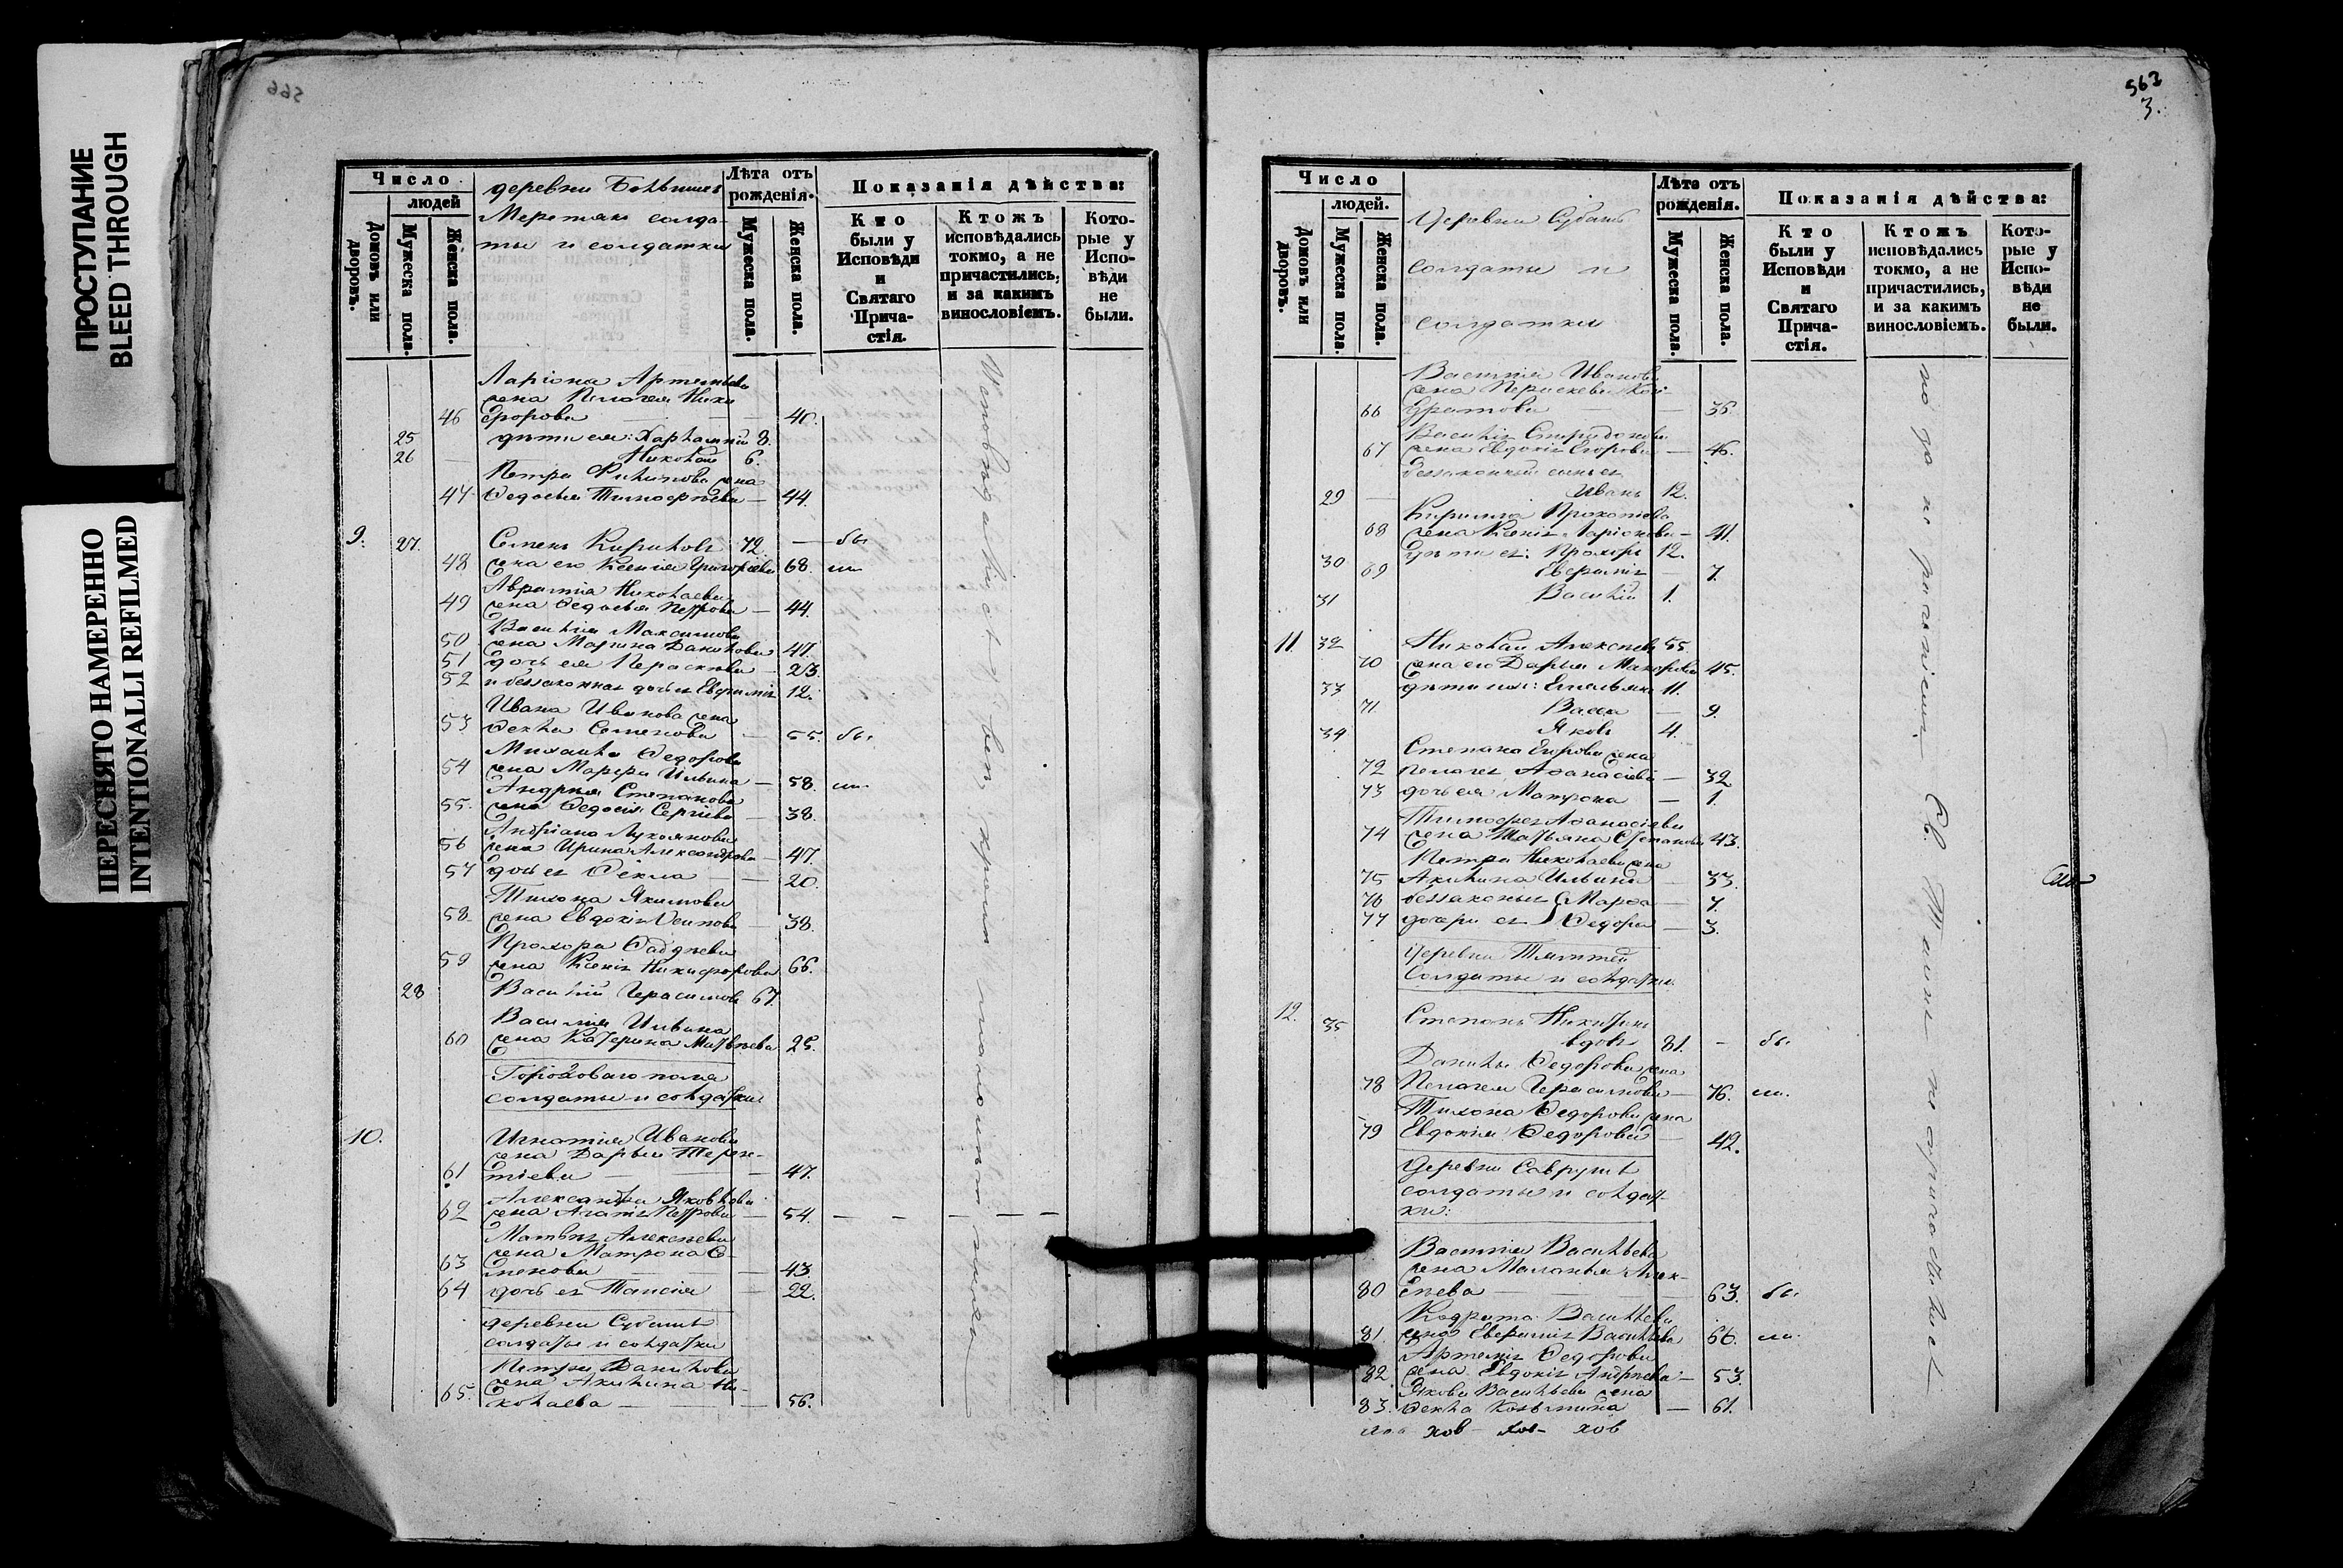 ПРОСТУПАНИЕ
BLEED THROUGH
ПЕРЕСНЯТО НАМЕРЕННО
INTENTIONALLI REFILMED
566
Число
людей
Домовъ или дворовъ.
Мужеска пола.
Женска пола.
деревни Большихъ
Меретякъ солда-
ты и солдатки
Лѣта отъ рожденія.
Мужеска пола.
Женска пола.
Показанія дѣйства:
Кто были у Исповѣди и Святаго Прича-стія.
Ктожъ исповѣдались токмо, а не причастились, и за какимъ винословіемъ.
Кото-рые у Испо-вѣди не были.
Ларіона Артемьева
жена Пелагея Ники
46 форова — 40.
25 дѣти ея: Харлампій 8.
26 Николай 6.
Петра Филипова жена
47 Федосья Тимофѣева — 44.
9. 27. Семенъ Кириловъ 72 — бы
48 жена его Ксенія Григорьева 68. ли
Аврамія Николаева
49 жена Федосья Петрова — 44.
Василія Максимова
50 жена Марина Данилова 47.
51 дочь ея Парасковья — 23.
52 и беззаконная дочь ея Евфимія 12.
Ивана Иванова жена
53 Фекла Семенова — 55. бы
Михаила Федорова
54 жена Марфа Ильина — 58. ли
Андрея Степанова
55. жена Федосія Сергіева — 38.
Андріана Лукоянова
56 жена Ирина Александрова — 47.
57 дочь ея Фекла — 20.
Тихона Якимова
58. жена Евдокія Осипова — 38.
Прохора Фаддѣева
59 жена Ксенія Никифорова 66.
28 Василій Герасимовъ 67.
Василія Ильина
60 жена Катерина Матвѣева 25.
Городоваго полка
солдаты и солдатки
10. Игнатія Иванова
жена Дарья Терен-
61 тіева — 47.
Александра Яковлева
62 жена Агафія Петрова — 54.
Матвѣя Алексѣева
63 жена Матрона С-
тепанова — 43.
64 дочь ея Таисія — 22.
деревни Субашъ
солдаты и солдатки
Петра Данилова
65. жена Акилина Ни-
колаева — 56.
563
3.
Число
людей.
Домовъ или дворовъ.
Мужеска пола.
Женска пола.
Деревни Субашъ
солдаты и
солдатки
Лѣта отъ рожденія.
Мужеска пола.
Женска пола.
Показанія дѣйства:
Кто были у Исповѣди и Святаго Прича-стія.
Ктожъ исповѣдались токмо, а не причастились, и за какимъ винословіемъ.
Кото-рые у Испо-вѣди не были.
Василія Иванова
жена Параскева Кон-
66 дратова — 36.
Василія Спиридонова
67 жена Евдокія Егорова — 46.
беззаконный сынъ ея
29 Иванъ 12.
Кирилла Прокопіева
68 жена Ксенія Ларіонова — 41.
30 дѣти ея: Прохоръ 12.
69 Евфимія — 7.
31 Василій 1.
11 32 Николай Алексѣевъ 55.
70 жена его Дарья Макарова 45.
33 дѣти ихъ: Емельянъ 11.
71 Васса — 9.
34 Яковъ 4.
Степана Егорова жена
72 Пелагея Афанасіева — 32
73 дочь ея Матрона — 1.
Тимофея Афанасіева
74 жена Татьяна Степанова 43.
Петра Николаева жена
75 Акилина Ильина — 33.
76 беззаконныя Марфа — 7.
77 дочери ея Федора — 3.
Деревни
солдаты и солдатки
12. 35 Степанъ Никитинъ
вдовъ 81. — бы
Данилы Федорова жена
78 Пелагея Герасимова — 76. ли.
Тихона Федорова жена
79 Евдокія Федорова — 42.
Деревни Саврушъ
солдаты и солдат-
ки:
Василія Васильева
жена Маланья Алек-
80 сѣева — 63. бы
Кодрата Васильева
81. жена Евфимія Васильева 66. ли
Артемія Федорова
82. жена Евдокія Андрѣева — 53.
Якова Васильева жена
83. Фекла Козьмина — 61.